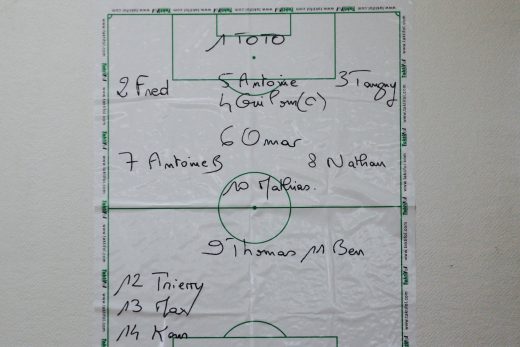 1 TOTO
2 Fred
5 Antoine
3 Tanguy
4 (C)
6 Omar
7 Antoine B
8 Nathan
10 Mathias.
9 Thomas 11 Ben
12 Thierry
13 Max
14
www.taktifol.com
Taktifol